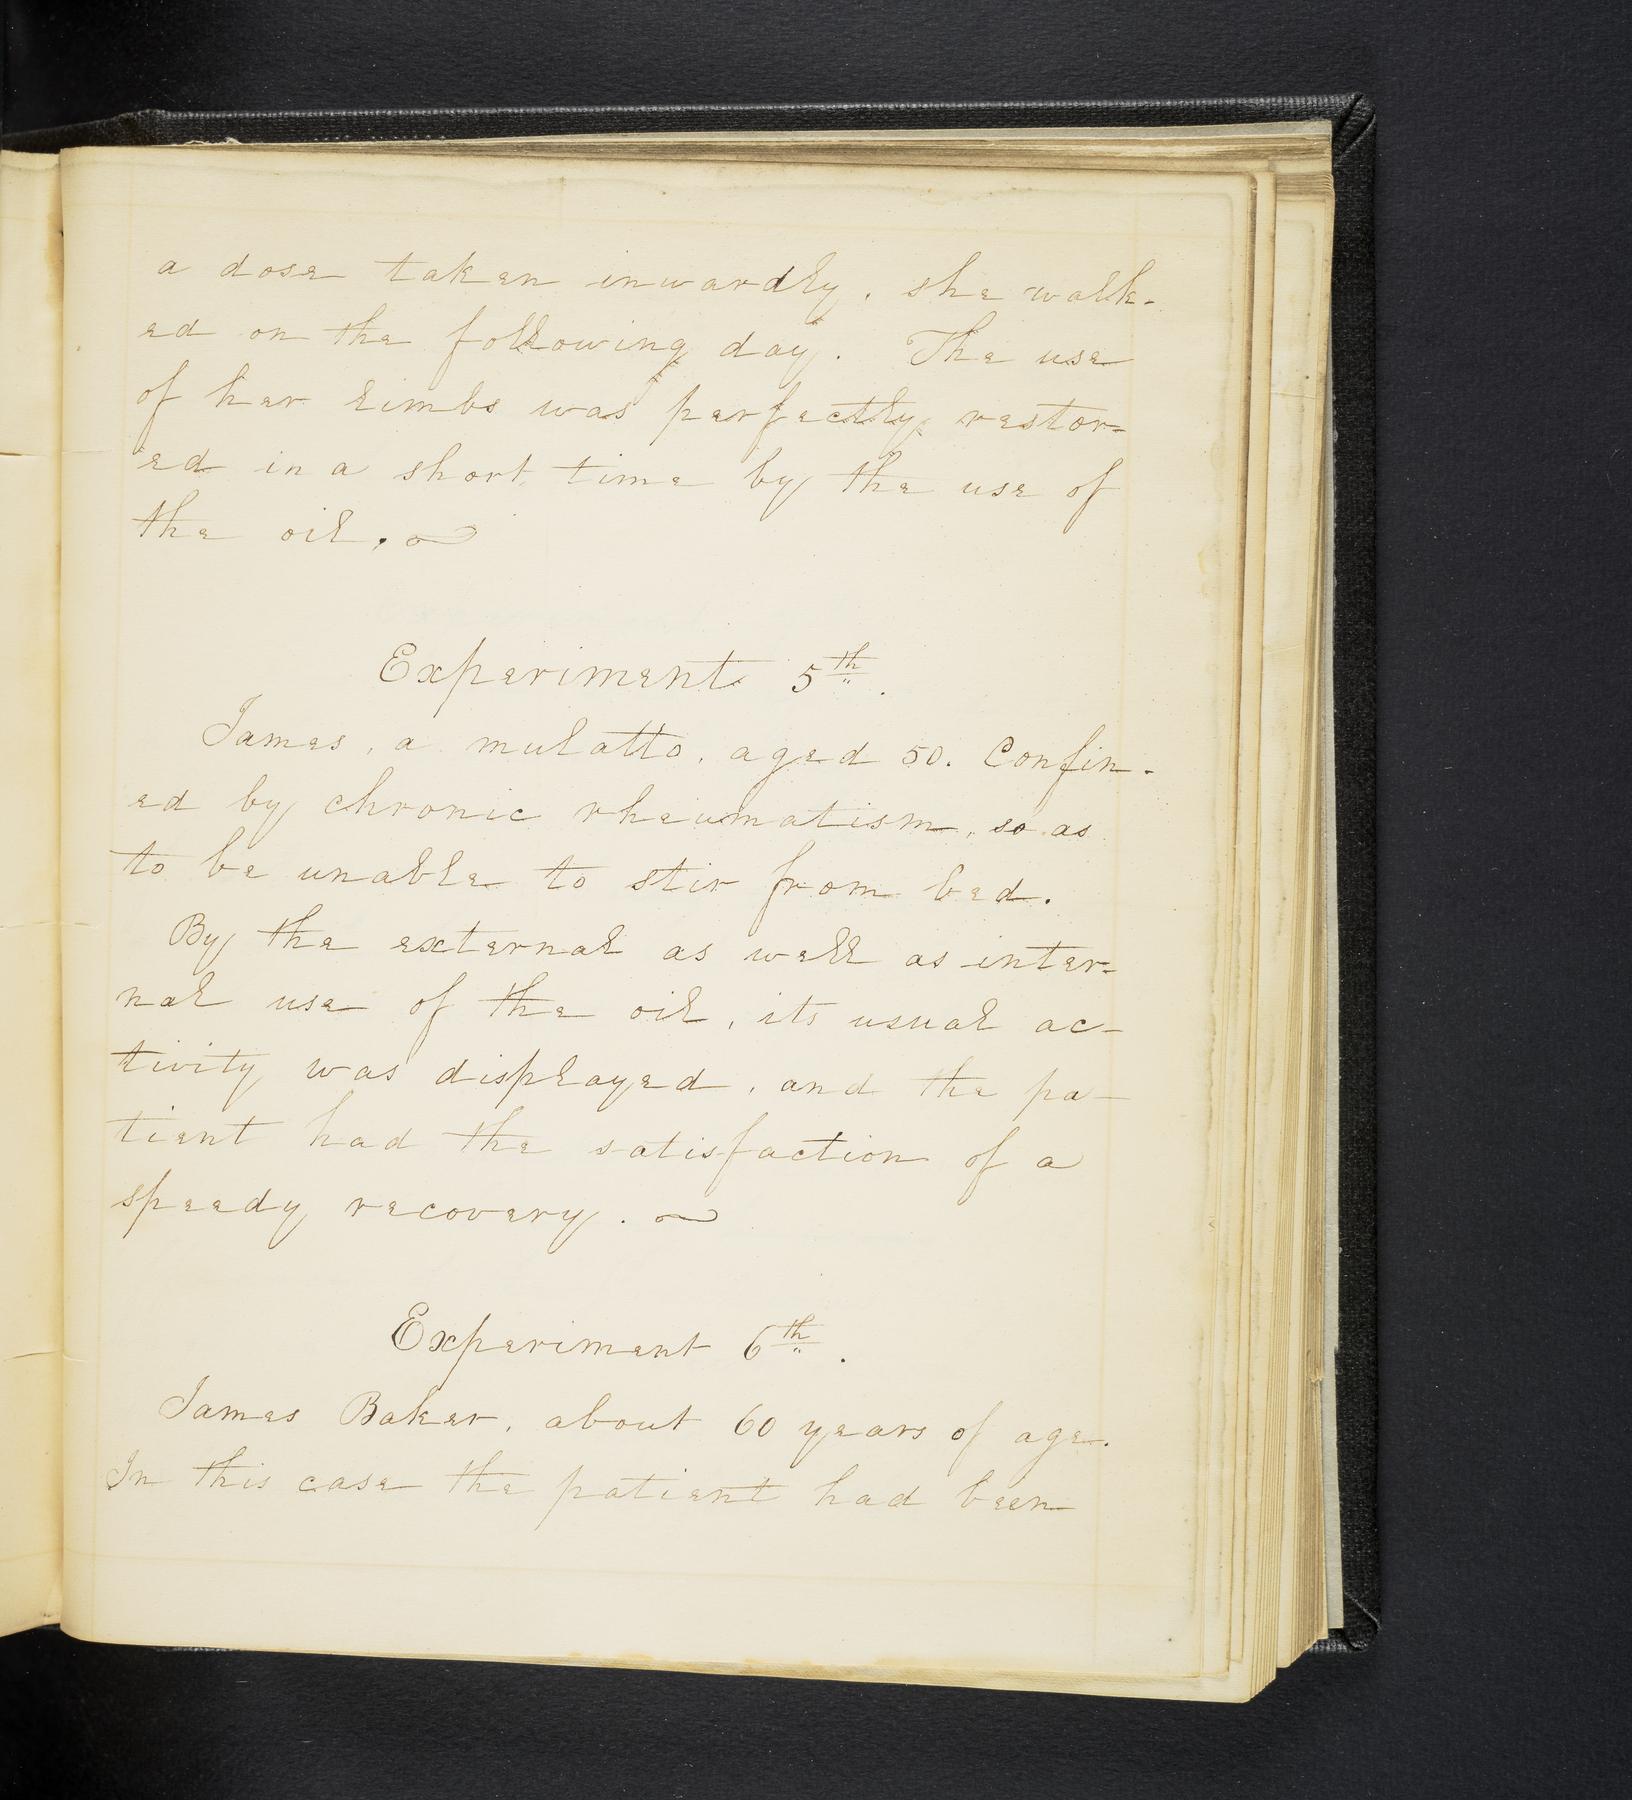 a dose taken inwardly, she walk-
ed on the following day. The use
of her limbs was perfectly restor-
ed in a short time by the use of
the oil.
Experiment 5th.
James, a mulatto, aged 50. Confin-
ed by chronic rheumatism, so as
to be unable to stir from bed.
By the external as well as inter-
nal use of the oil, its usual ac-
tivity was displayed, and the pa-
tient had the satisfaction of a
speedy recovery.
Experiment 6th.
James Baker, about 60 years of age.
In this case the patient had been